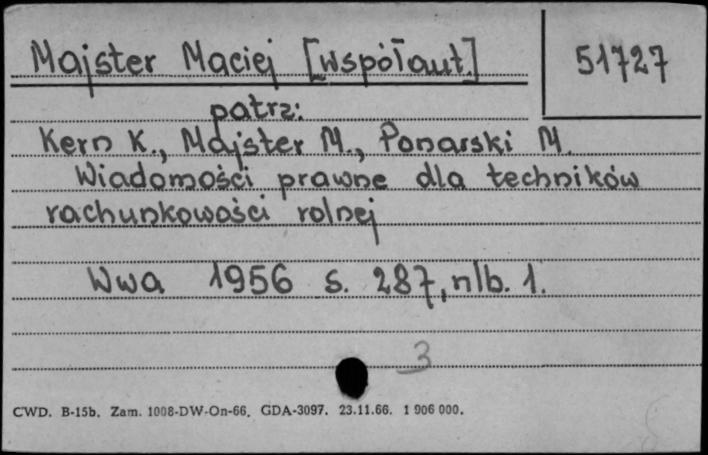 Majster Maciej [współaut.]
51727
patrz:
Kern K., Majster M., Ponarski M.
Wiadomości prawne dla techników
rachunkowości rolnej
Wwa 1956 s. 287, nlb. 1.
3
CWD. B-15b. Zam. 1008-DW-On-66. GDA-3097. 23.11.66. 1 906 000.